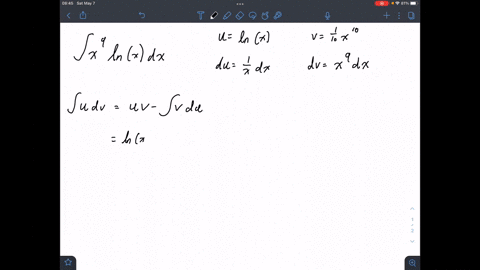 00:45 Sat May 7
21%
∫ x⁹ ln(x) dx u = ln(x) v = 1/10 x¹⁰
du = 1/x dx dv = x⁹ dx
∫ u dv = uv - ∫ v du
= ln(x
1
2